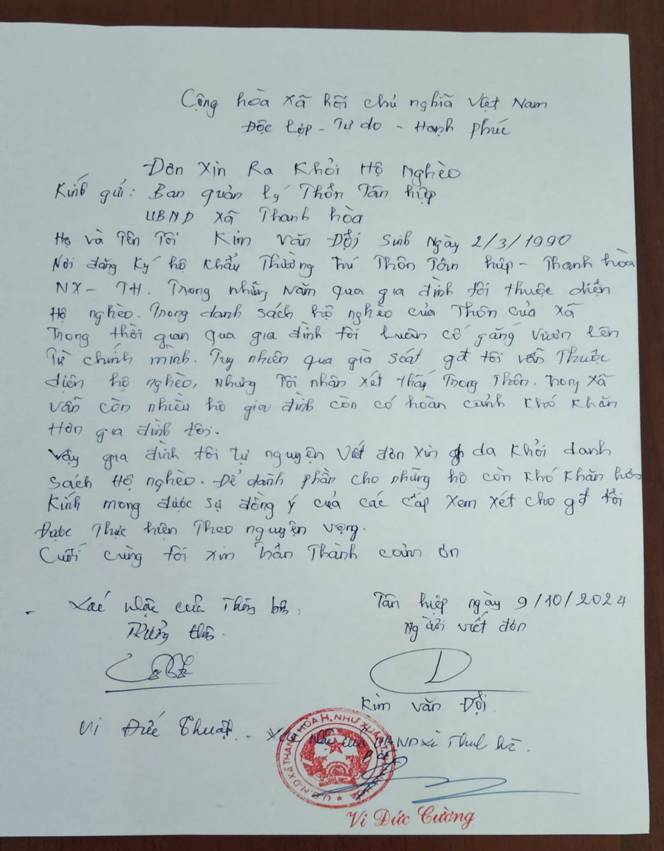 Cộng hòa xã hội chủ nghĩa Việt Nam
Độc lập - Tự do - Hạnh phúc
Đơn Xin Ra Khỏi Hộ Nghèo
Kính gửi: Ban quản lý Thôn Tân hiệp
UBND xã Thanh hòa
Họ và Tên Tôi Kim Văn Đội Sinh ngày 2/3/1990
Nơi đăng ký hộ khẩu Thường Trú Thôn Tân hiệp - Thanh hòa
NX - TH. Trong những năm qua gia đình tôi thuộc diện
Hộ nghèo. Trong danh sách hộ nghèo của Thôn của xã
Trong thời quan qua gia đình tôi luôn cố gắng vươn lên
Từ chính mình. Tuy nhiên qua già soát gđ tôi vẫn Thuộc
diện hộ nghèo, Nhưng Tôi nhận xét thấy Trong Thôn. Trong xã
vẫn còn nhiều hộ gia đình còn có hoàn cảnh khó khăn
Hơn gia đình tôi.
Vậy gia đình tôi tự nguyện viết đơn xin da khỏi danh
sách Hộ nghèo. Để dành phần cho những hộ còn khó khăn hơn
Kính mong được sự đồng ý của các cấp xem xét cho gđ tôi
Được Thực hiện Theo nguyện vọng.
Cuối cùng tôi xin chân Thành cảm ơn
Tân hiệp ngày 9/10/2024
- Xác nhận của Thôn
Người viết đơn
Trưởng thôn.
Kim Văn Đội
Vi Đức Thuật
U.B.N.D XÃ THANH HÒA H. NHƯ XUÂN
UBND xã Thanh hòa.
Vi Đức Cường